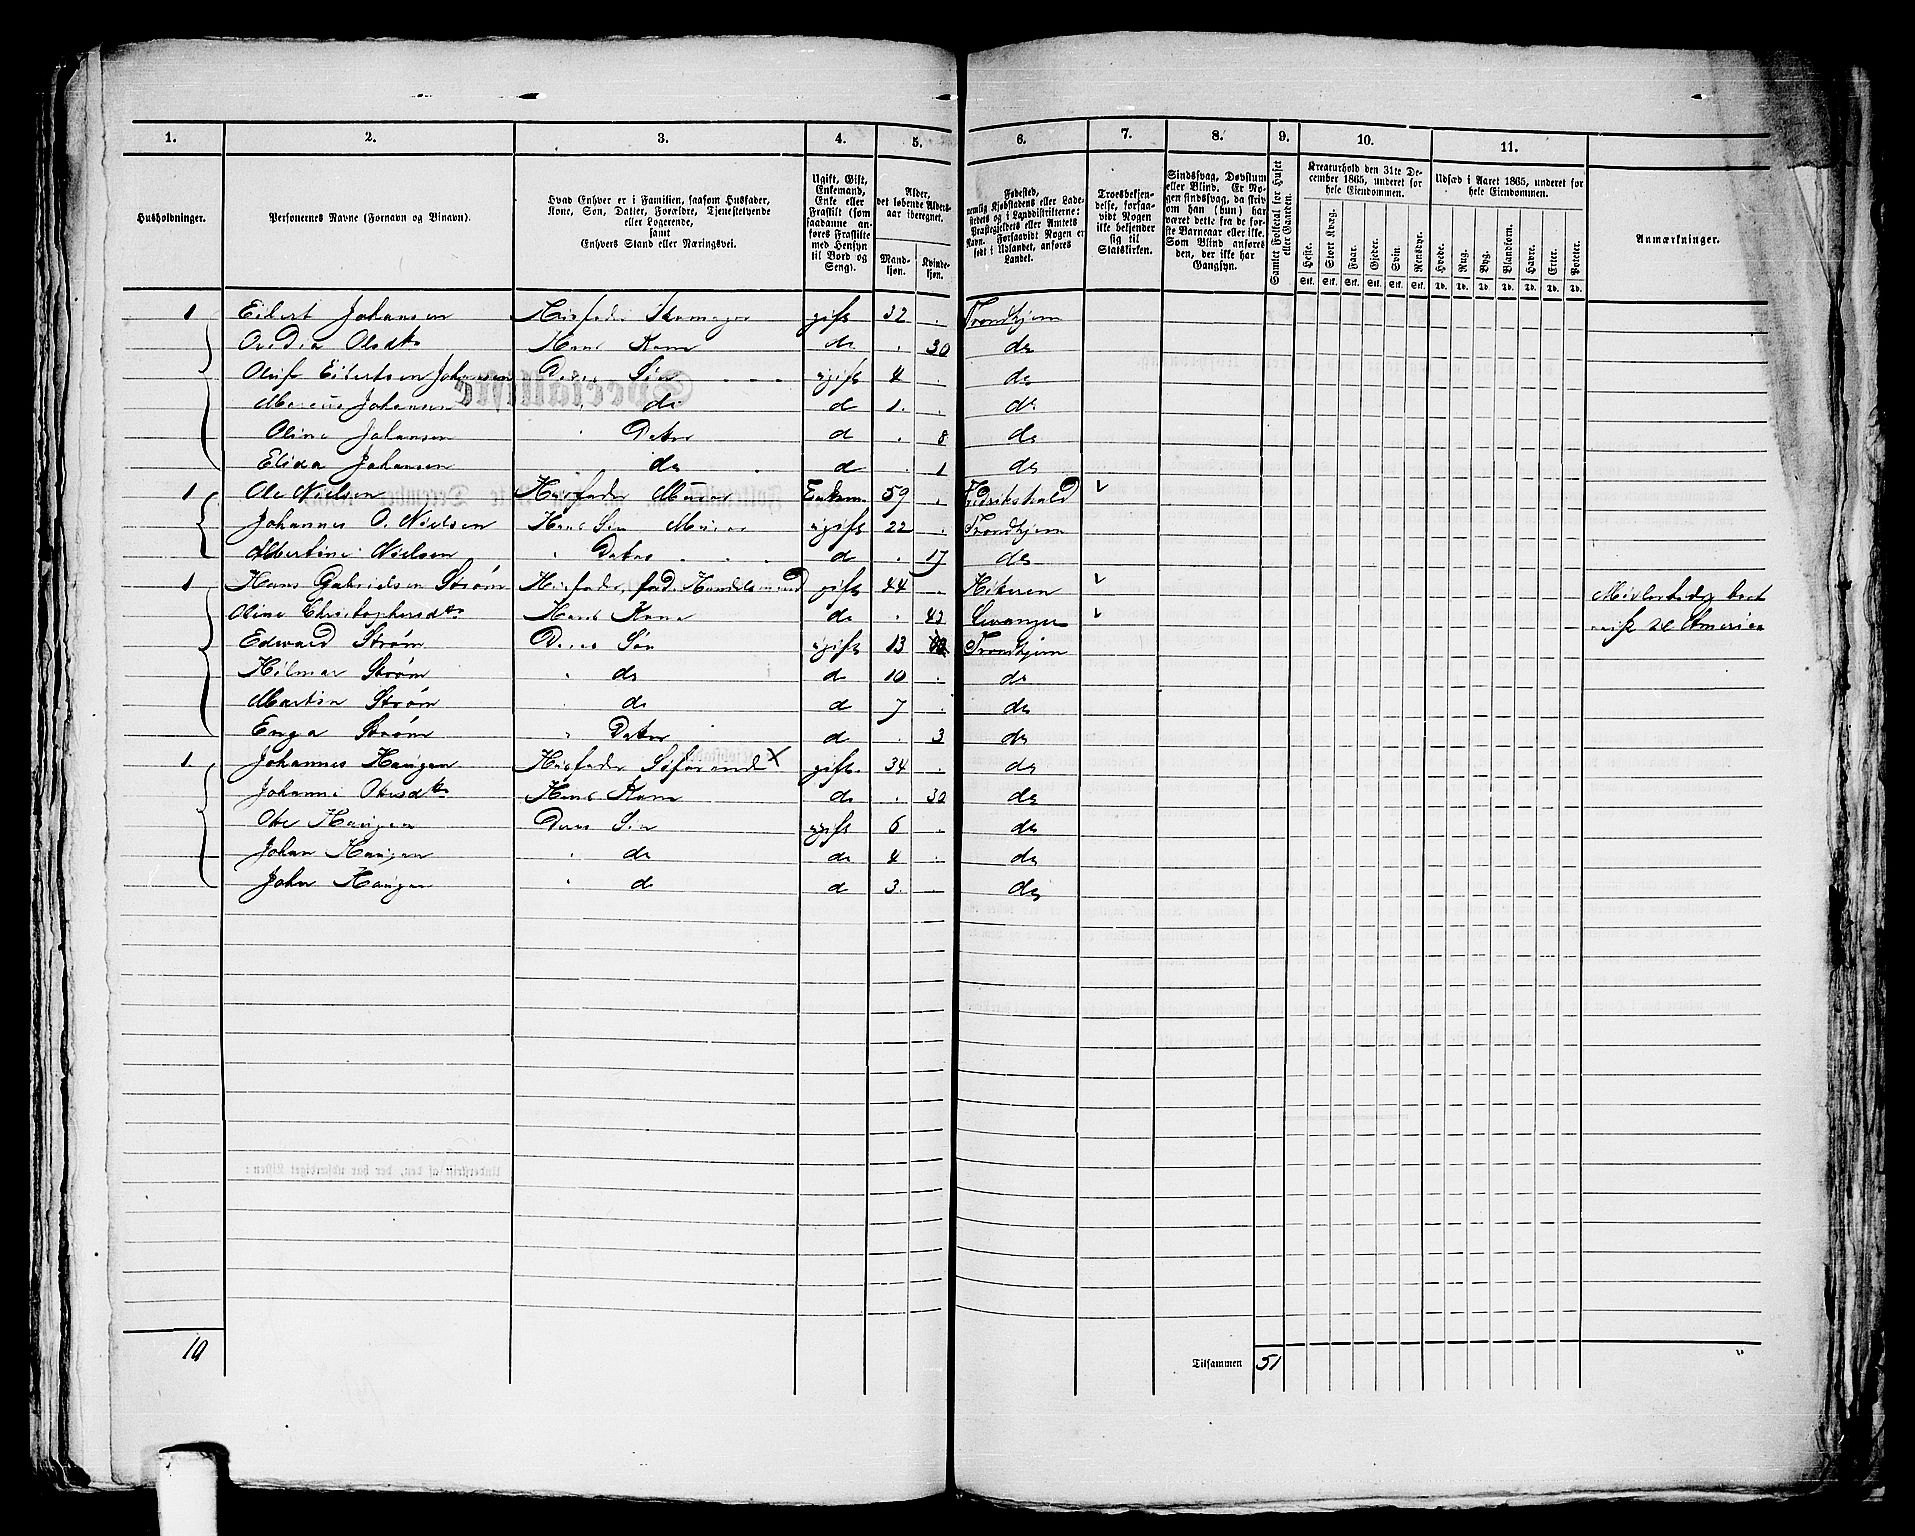 1. 2. 3. 4. 5. 6. 7. 8. 9. 10. 11.
Husholdninger.
Personernes Navne (Fornavn og Binavn).
Hvad Enhver er i Familien, saasom Husfader, Kone, Søn, Datter, Forældre, Tjenestetyende eller Logerende, samt Enhvers Stand eller Næringsvei.
Ugift, Gift, Enkemand, Enke eller Fraskilt (som saadanne anføres Fraskilte med Hensyn til Bord og Seng).
Alder, det løbende Alders-aar iberegnet.
Mand-kjøn. Kvinde-kjøn.
Fødested, nemlig Kjøbstadens eller Ladestedets og i Landdistrikterne: Præstegjeldets eller Amtets Navn. Forsaavidt Nogen er født i Udlandet, anføres Landet.
Troesbekjendelse, forsaavidt Nogen ikke bekjender sig til Statskirken.
Sindssvag, Døvstum eller Blind. Er Nogen sindssvag, da skrives om han (hun) har været dette fra de første Barneaar eller ikke. Som Blind anføres den, der ikke har Gangsyn.
Samlet Folketal for Huset eller Gaarden.
Kreaturhold den 31te December 1865, underet for hele Eiendommen.
Heste. Stort Kvæg. Faar. Gjeder. Svin. Rensdyr.
Stk. Stk. Stk. Stk. Stk. Stk.
Udsæd i Aaret 1865, underet for hele Eiendommen.
Hvede. Rug. Byg. Blandkorn. Havre. Erter. Poteter.
Td. Td. Td. Td. Td. Td. Td.
Anmærkninger.
1 Eilert Johansen Husfader gift 32 . Trondhjem
Olsdtr Hans Kone do . 30 do
Oluf Eilertsen Johansen Deres Søn ugift 4 . do
Johansen do d 1. . do
Oline Johansen " Datter d . 8 do
Elida Johansen do d . 1 do
1 Ole Nielsen Husfader Murer Enkem 59 . Fredrikshald
Johannes O. Nielsen Hans Søn Murer ugift 22 . Trondhjem
Albertine Nielsen " Datter d . 17 do
1 Hans Gabrielsen Strøm Husfader, Handelsmand gift 44 . Hiteren
Oline Christophersdtr Hans Kone do . 42 Levanger
Edvard Strøm Deres Søn ugift 13 Trondhjem
Hilmar Strøm " do d 10 . do
Martin Strøm " do d 7 . do
Strøm " Datter d . 3 do
til America
1 Johannes Haugan Husfader Søformand X gift. 34 . do
Johanna Olesdtr Hans Kone do . 30 do
Ole Haugan Deres Søn ugift 6 . do
Johan Haugan " do do 4 . do
John Haugan " d d 3. . do
10
Tilsammen 51 "